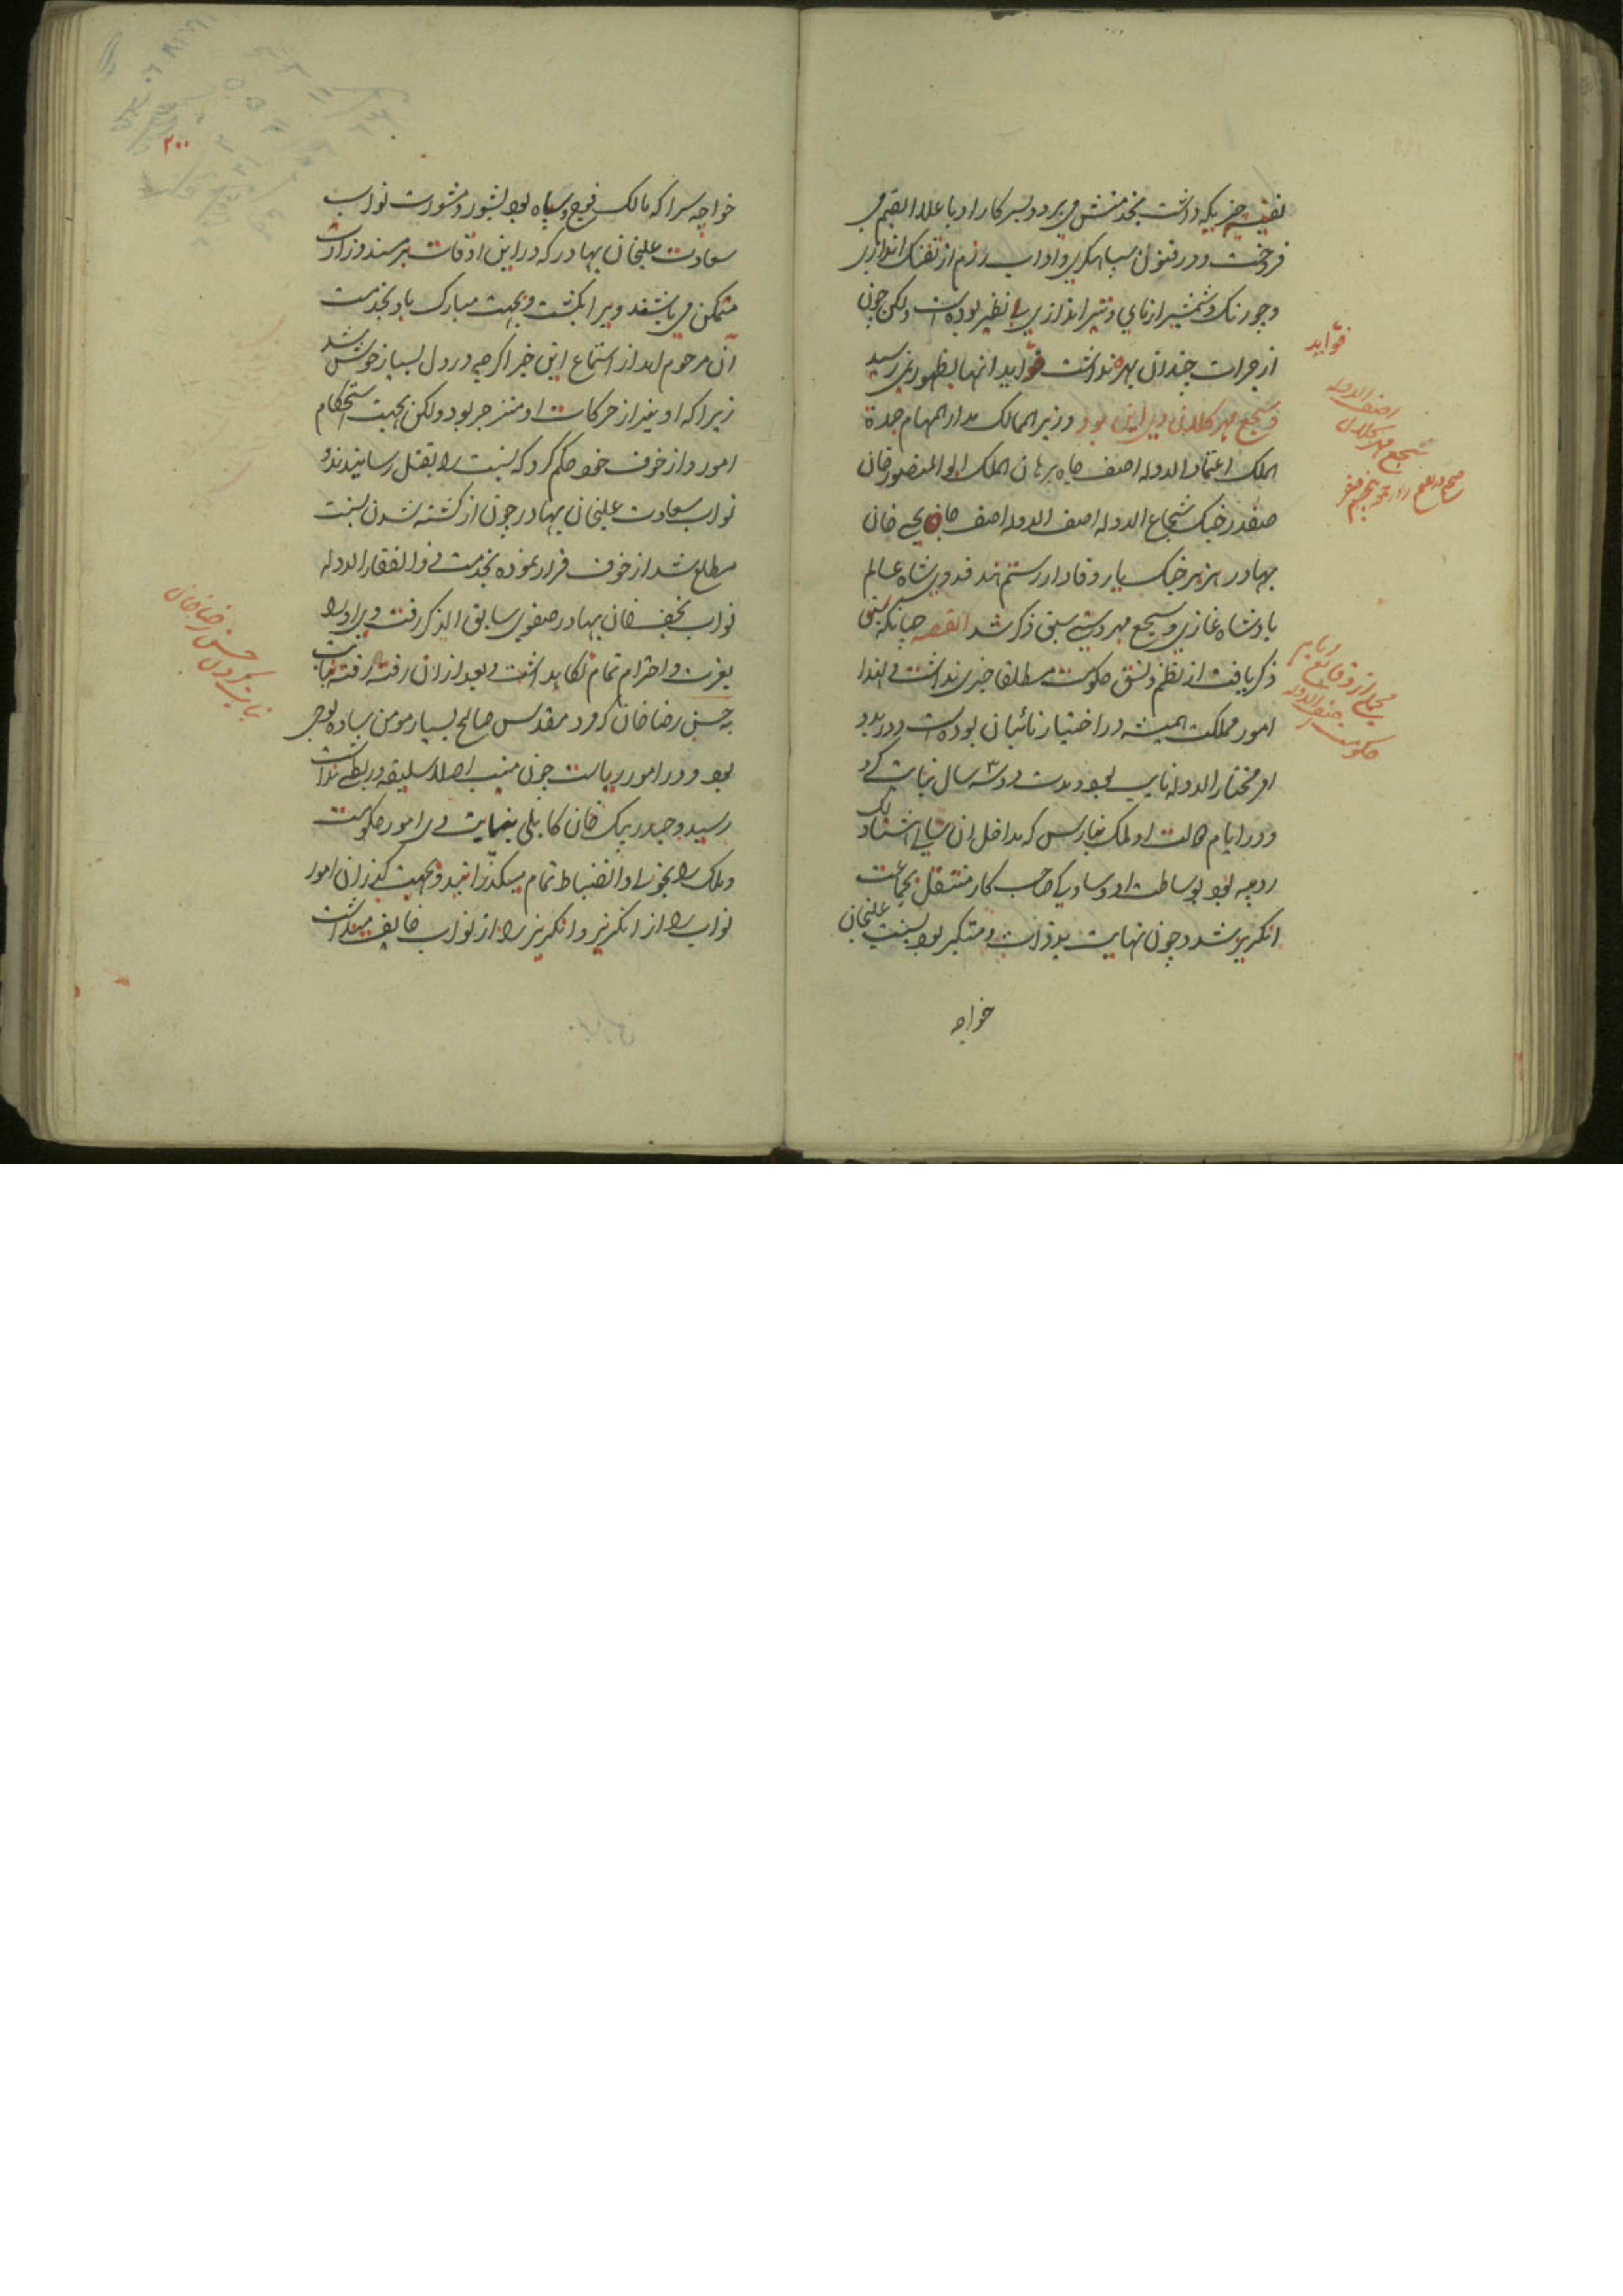 نفیسه چیزیکه داشت بخدمتش می برد و بسرکار او باعلا القیم می
فروخت و در فنون سپاهگری و اداب رزم از تفنک اندازی
و چورنک و شمشیر ازمای و تیر اندازی بی نظیر بوده است ولکن چون
از جرات چندان بهره نداشت فواید انها بظهور نمی رسید
و سجع مهر کلان وی این بود وزیر الممالک مدار المهام جملة
الملک اعتماد الدوله اصف جاه برهان الملک ابو المنصور خان
صفدر جنک شجاع الدوله اصف الدوله اصف جاه یحیی خان
بهادر هزبر جنک یار وفادار رستم هند فدوی شاه عالم
بادشاه غازی و سجع مهر دستی سبق ذکر شد القصه چنانکه سبق
ذکر یافت از نظم و نسق حکومت مطلقا خبری نداشت و لهذا
امور مملکت همیشه در اختیار نائبان بوده است و در بدو
امر مختار الدوله نایب بود و مدت دو سه سال نیابت کرد
و در ایام نیابت او ملک بنارس که مداخل ان هشتاد لک
روپیه بود بوساطت او صاحب کار منتقل بجماعت
انکریز شد و چون نهایت بدذات و متکبر بود بسنت علیخان
خواجه
فواید
اصف الدوله
سجع مهر کلان
مجملی از وقایع ایام
حکومت اصف الدوله
۲۰۰
خواجه سرا که مالک فوج و سپاه بود بشور و مشورت نواب
سعادت علیخان بهادر که در این اوقات بر مسند وزارت
متمکن می باشند ویرا بکشت و بجهت مبارک باد بخدمت
آن مرحوم امد از استماع این خبر اکرچه در دل بسیار خوش شد
زیرا که او نیز از حرکات او منزجر بود ولکن بجهت استحکام
امور و از خوف خود حکم کرد که بسنت را بقتل رسانیدند و
نواب سعادت علیخان بهادر چون از کشته شدن بسنت
مطلع شد از خوف فرار نموده بخدمت ذوالفقار الدوله
نواب نجف خان بهادر صفوی سابق الذکر رفت وی او را
بعزت و احترام تمام نکاهداشت و بعد از ان رفته رفته نیابت
به حسن رضا خان کرد و مقدس صالح بسیار مومن ساده لوحی
بود و در امور ریاست چون منیب اصلا سلیقه و ربطی نداشت
رسید و حیدر بیک خان کابلی بنیابت وی امور حکومت
و ملک را بخوبی و انضباط تمام میکذرانید و بجهت کذران امور
نواب را از انکریز و انکریز را از نواب خایف میداشت
نیابت کردن حسن رضا خان